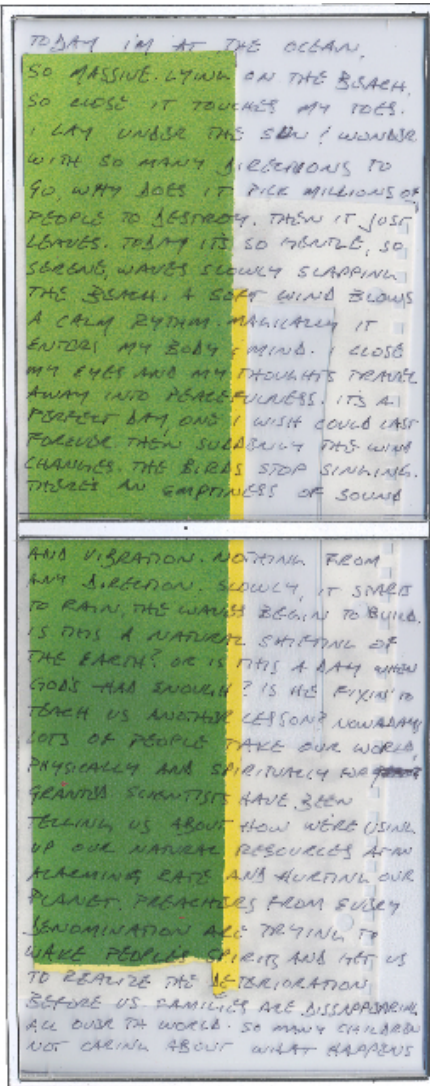 TODAY I'M AT THE OCEAN,
SO MASSIVE. LYING ON THE BEACH,
SO CLOSE IT TOUCHES MY TOES.
I LAY UNDER THE SUN & WONDER
WITH SO MANY DIRECTIONS TO
GO, WHY DOES IT PICK MILLIONS OF
PEOPLE TO DESTROY. THEN IT JUST
LEAVES. TODAY ITS SO GENTLE, SO
SERENE, WAVES SLOWLY SLAPPING
THE BEACH. A SOFT WIND BLOWS
A CALM RYTHM. MAGICALLY IT
ENTERS MY BODY & MIND. I CLOSE
MY EYES AND MY THOUGHTS TRAVEL
AWAY INTO PEACEFULNESS. ITS A
PERFECT DAY, ONE I WISH COULD LAST
FOREVER THEN SUDDENLY THE WIND
CHANGES. THE BIRDS STOP SINGING.
THERE'S AN EMPTINESS OF SOUND
AND VIBRATION. NOTHING FROM
ANY DIRECTION. SLOWLY, IT STARTS
TO RAIN, THE WAVES BEGIN TO BUILD.
IS THIS A NATURAL SHIFTING OF
THE EARTH? OR IS THIS A DAY WHEN
GOD'S HAD ENOUGH? IS HE FIXIN' TO
TEACH US ANOTHER LESSON? NOWADAYS
LOTS OF PEOPLE TAKE OUR WORLD,
PHYSICALLY AND SPIRITUALLY FOR
GRANTED SCIENTISTS HAVE BEEN
TELLING US ABOUT HOW WE'RE USING
UP OUR NATURAL RESOURCES AT AN
ALARMING RATE AND HURTING OUR
PLANET. PREACHERS FROM EVERY
DENOMINATION ARE TRYING TO
WAKE PEOPLE'S SPIRITS AND GET US
TO REALIZE THE DETERIORATION
BEFORE US FAMILIES ARE DISSAPPEARING
ALL OVER TH WORLD. SO MANY CHILDREN
NOT CARING ABOUT WHAT HAPPENS